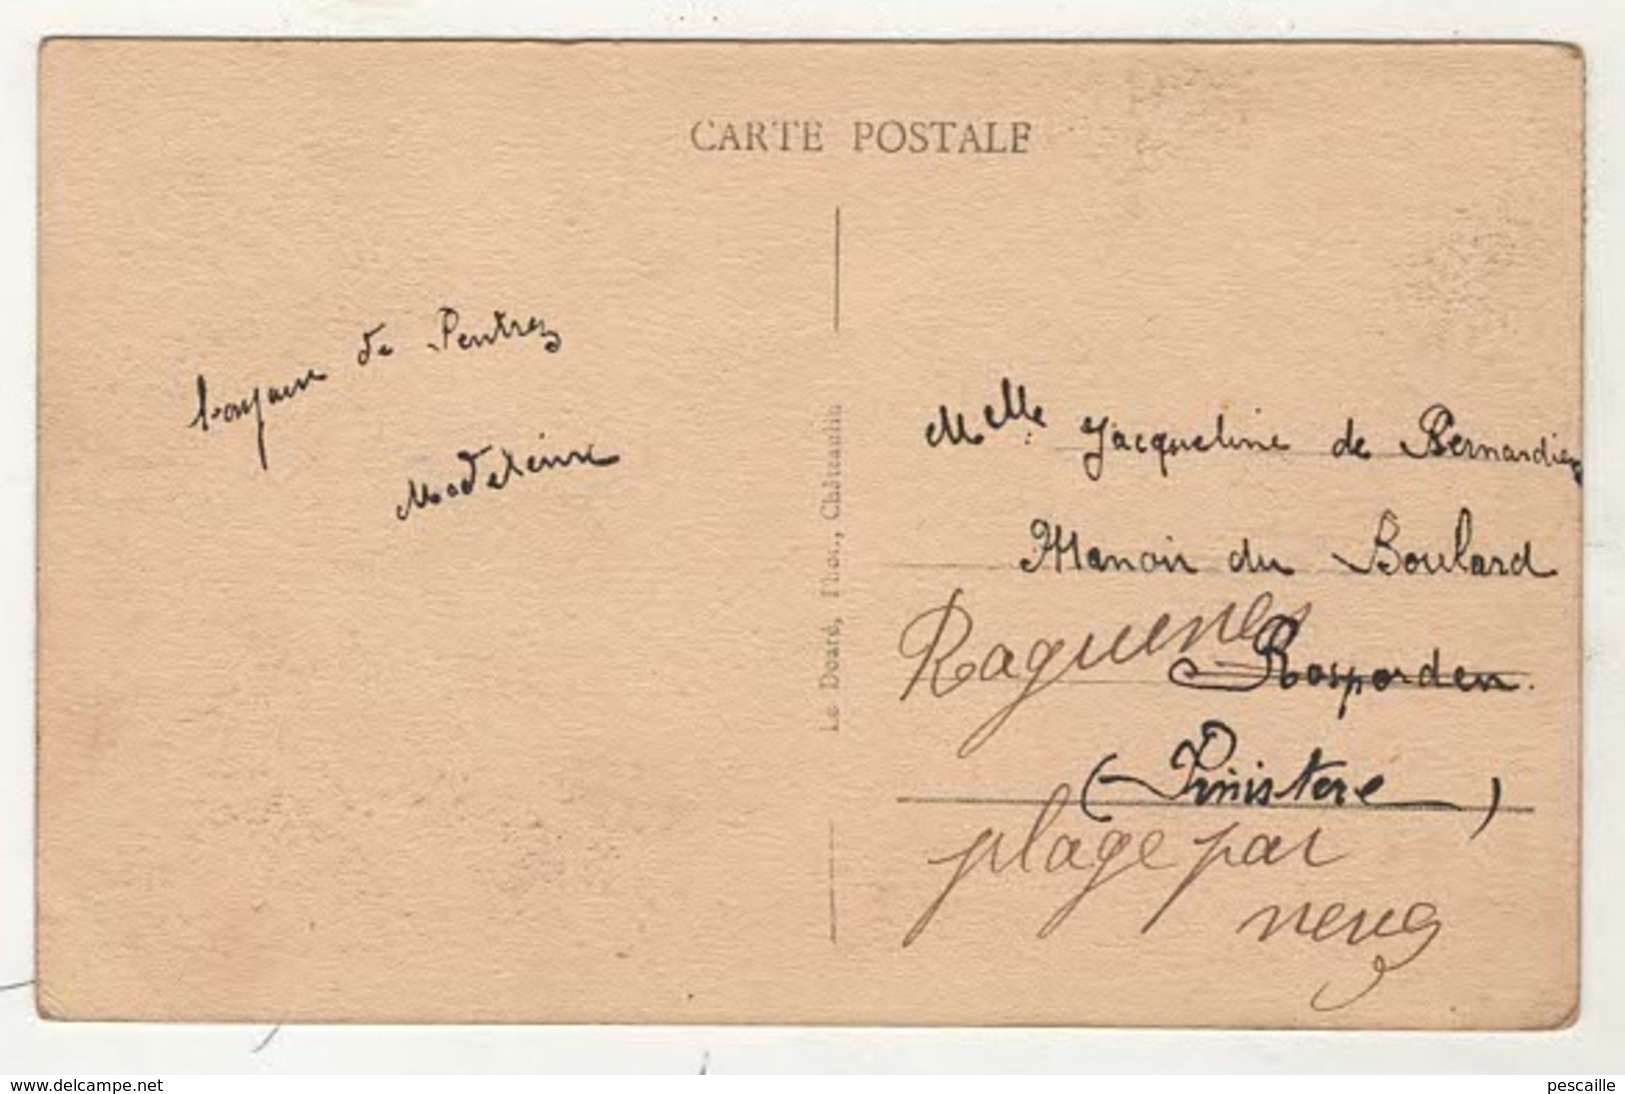 CARTE POSTALE
bonjour de Pentrez
Madeleine
Le Doaré, Phot., Châteaulin
Melle Jacqueline de Bernardieres
Manoir du Boulard
Raguenes Rosporden.
(Finistere)
plage par
nevez
www.delcampe.net
pescaille